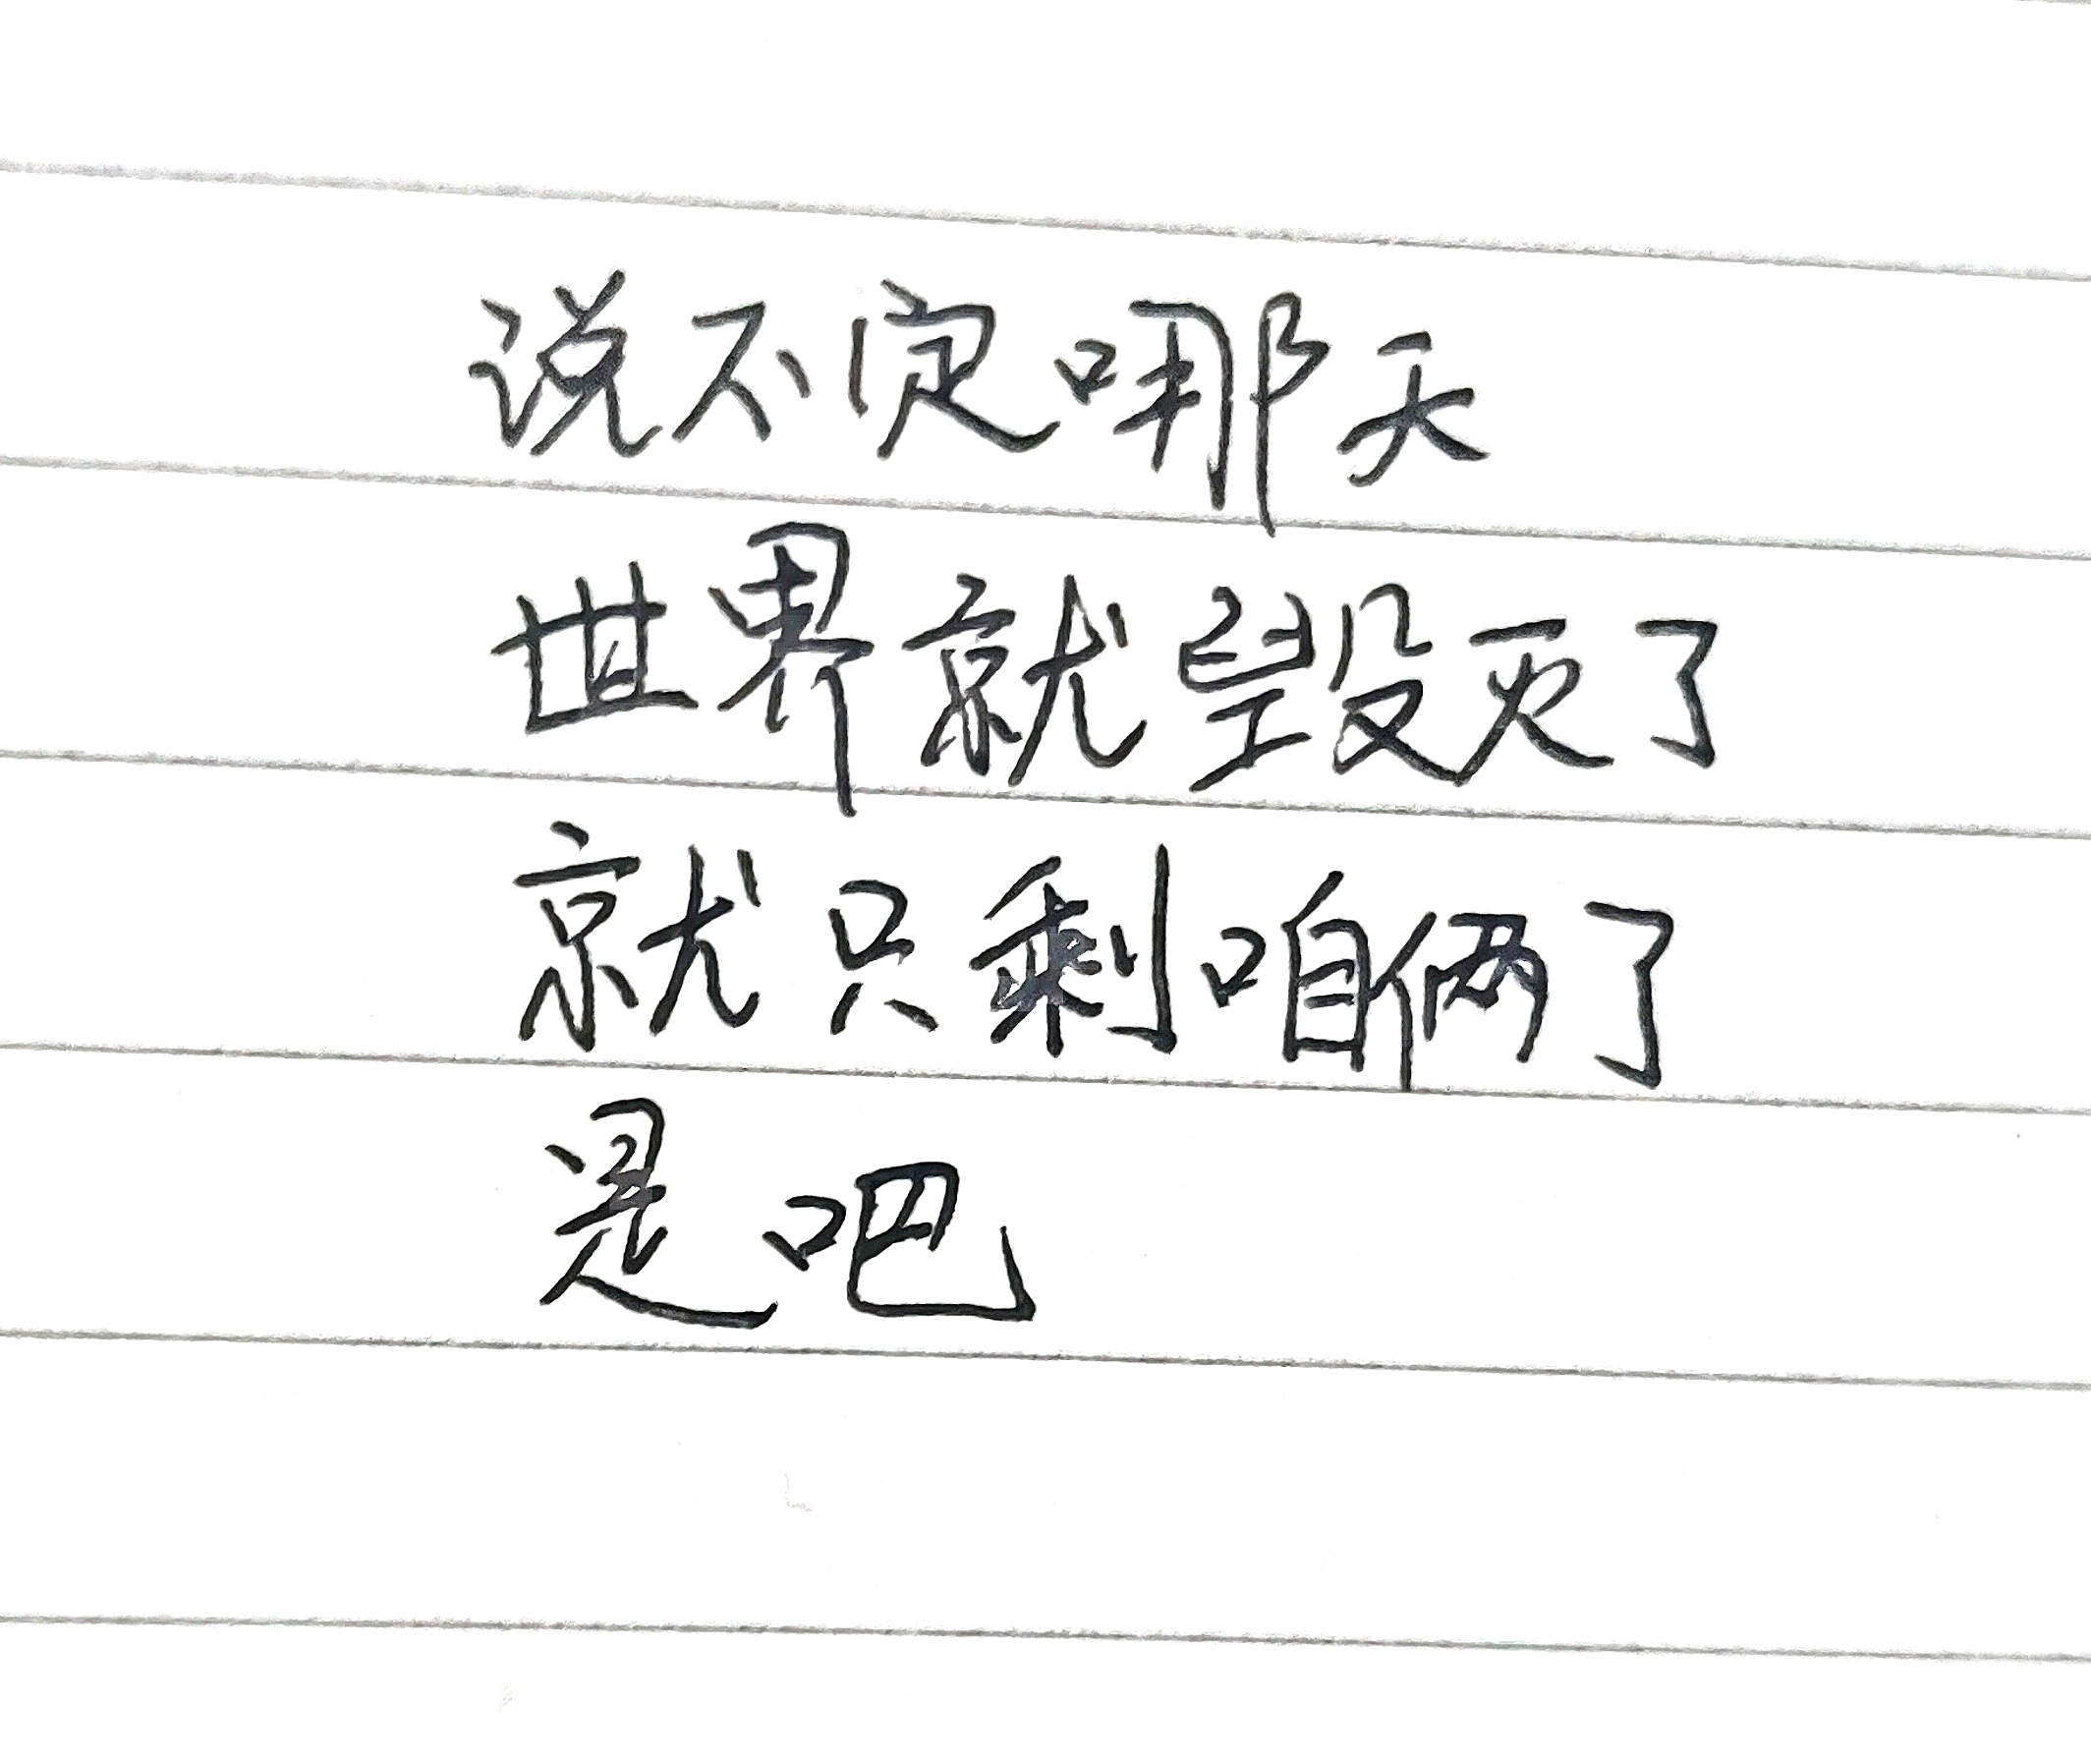 说不定哪天
世界就毁灭了
就只剩咱俩了
是吧